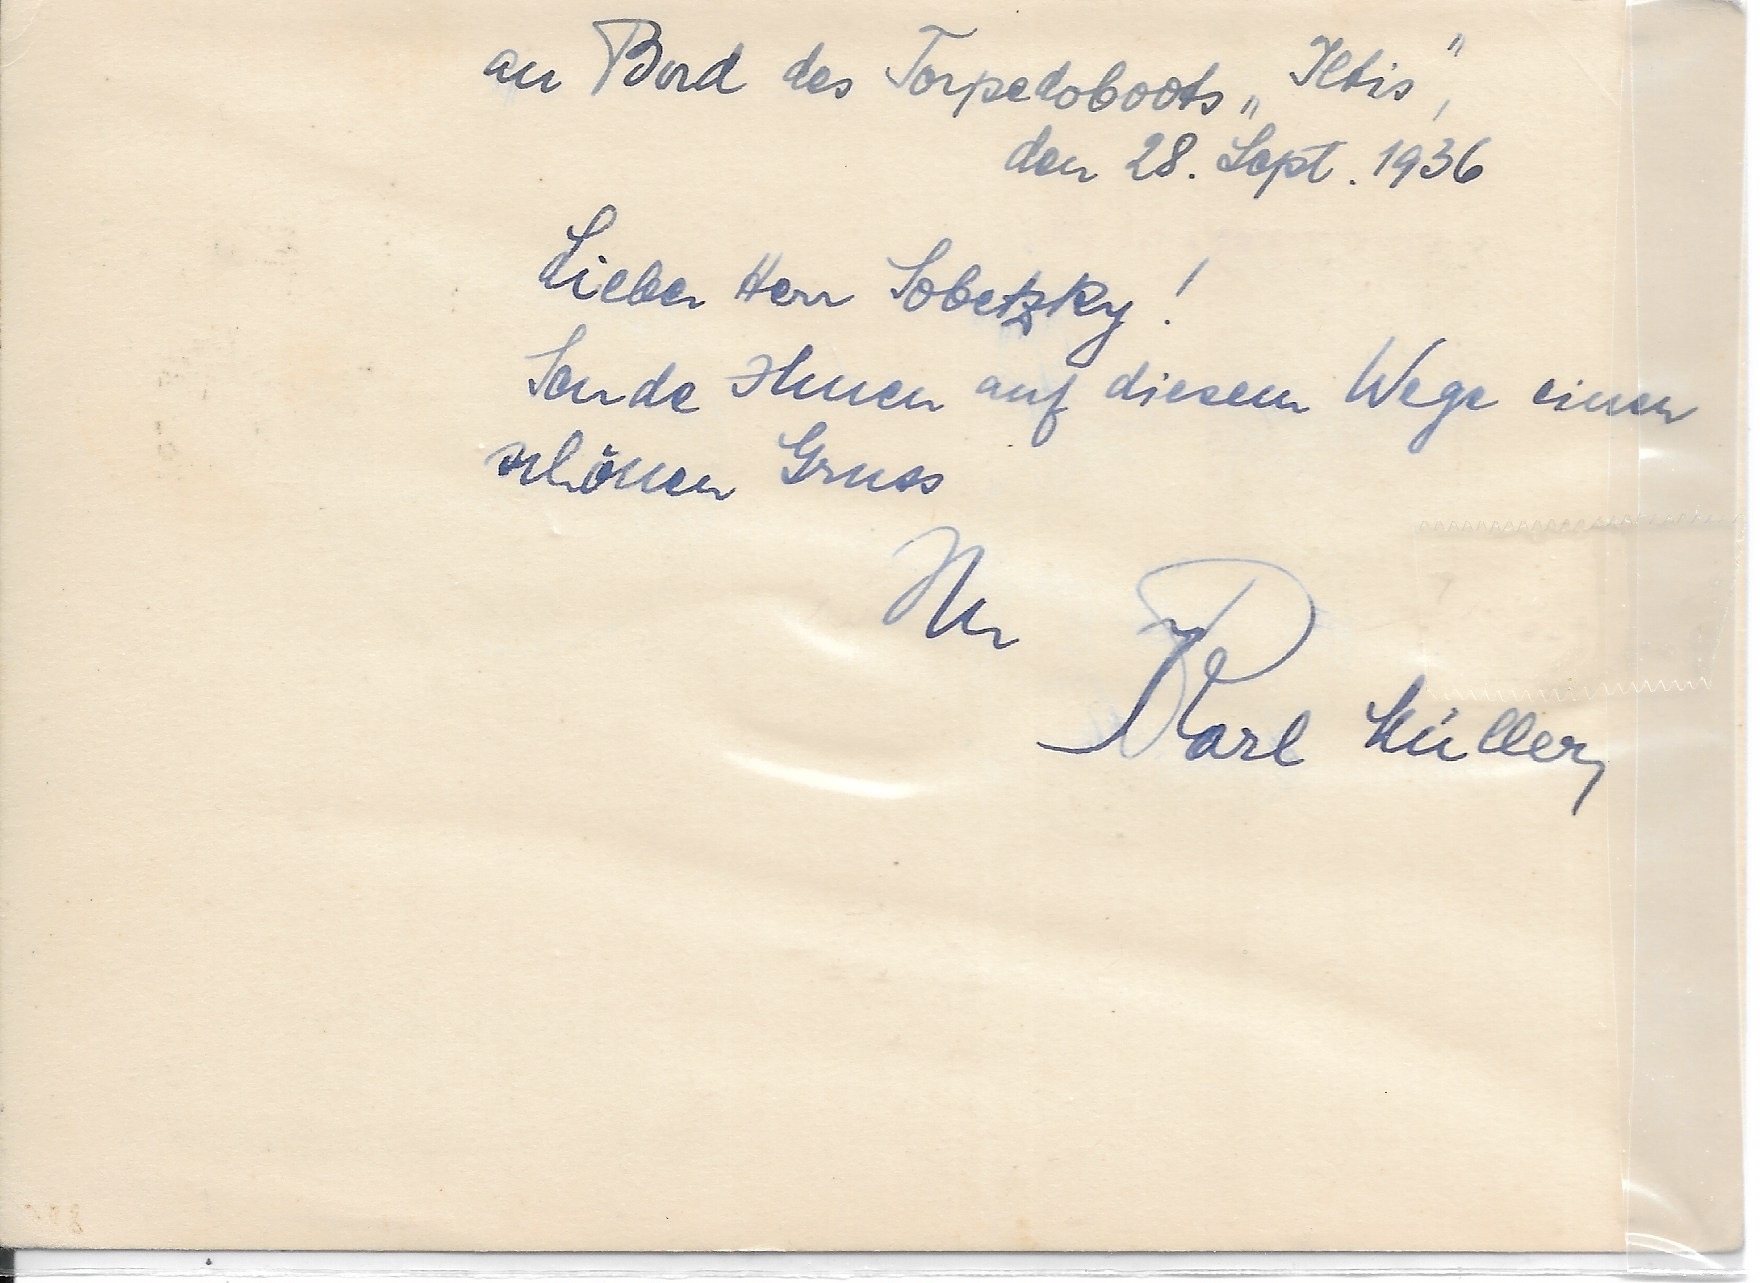 an Bord des Torpedoboots „Iltis",
den 28. Sept. 1936
Lieber Herr Sobetzky!
Sende Ihnen auf diesem Wege einen
schönen Gruss
Ihr
Karl Müller